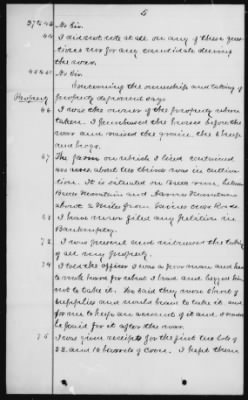 5
37 to 43 No Sir.
44 I did not vote at all on any of these questions nor for any candidate during the war.
45 & 47 No Sir.
Concerning the ownership and taking of property deponent says
Property
66 I was the owner of the property when taken. I purchased the horses before the war and raised the grain the sheep and hogs.
67 The farm on which I lived contained
about two thirds was in cultivation. It is situated on
about 2 miles from
68 I have never filed any petition in Bankruptcy.
72 I was present and witnessed the taking of all my property.
74 I told the officer I was a poor man and had to work hard for what I had and begged him not to take it. He said they were short of supplies and would have to take it and for me to keep an account of it and I would be paid for it after the war.
75 I was given receipts for the first two lots of 22 and 10 barrels of corn. I kept them